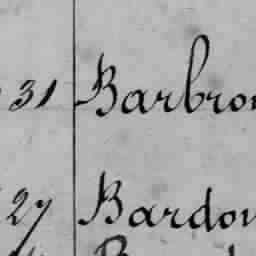 31 Barbron
27 Bardon